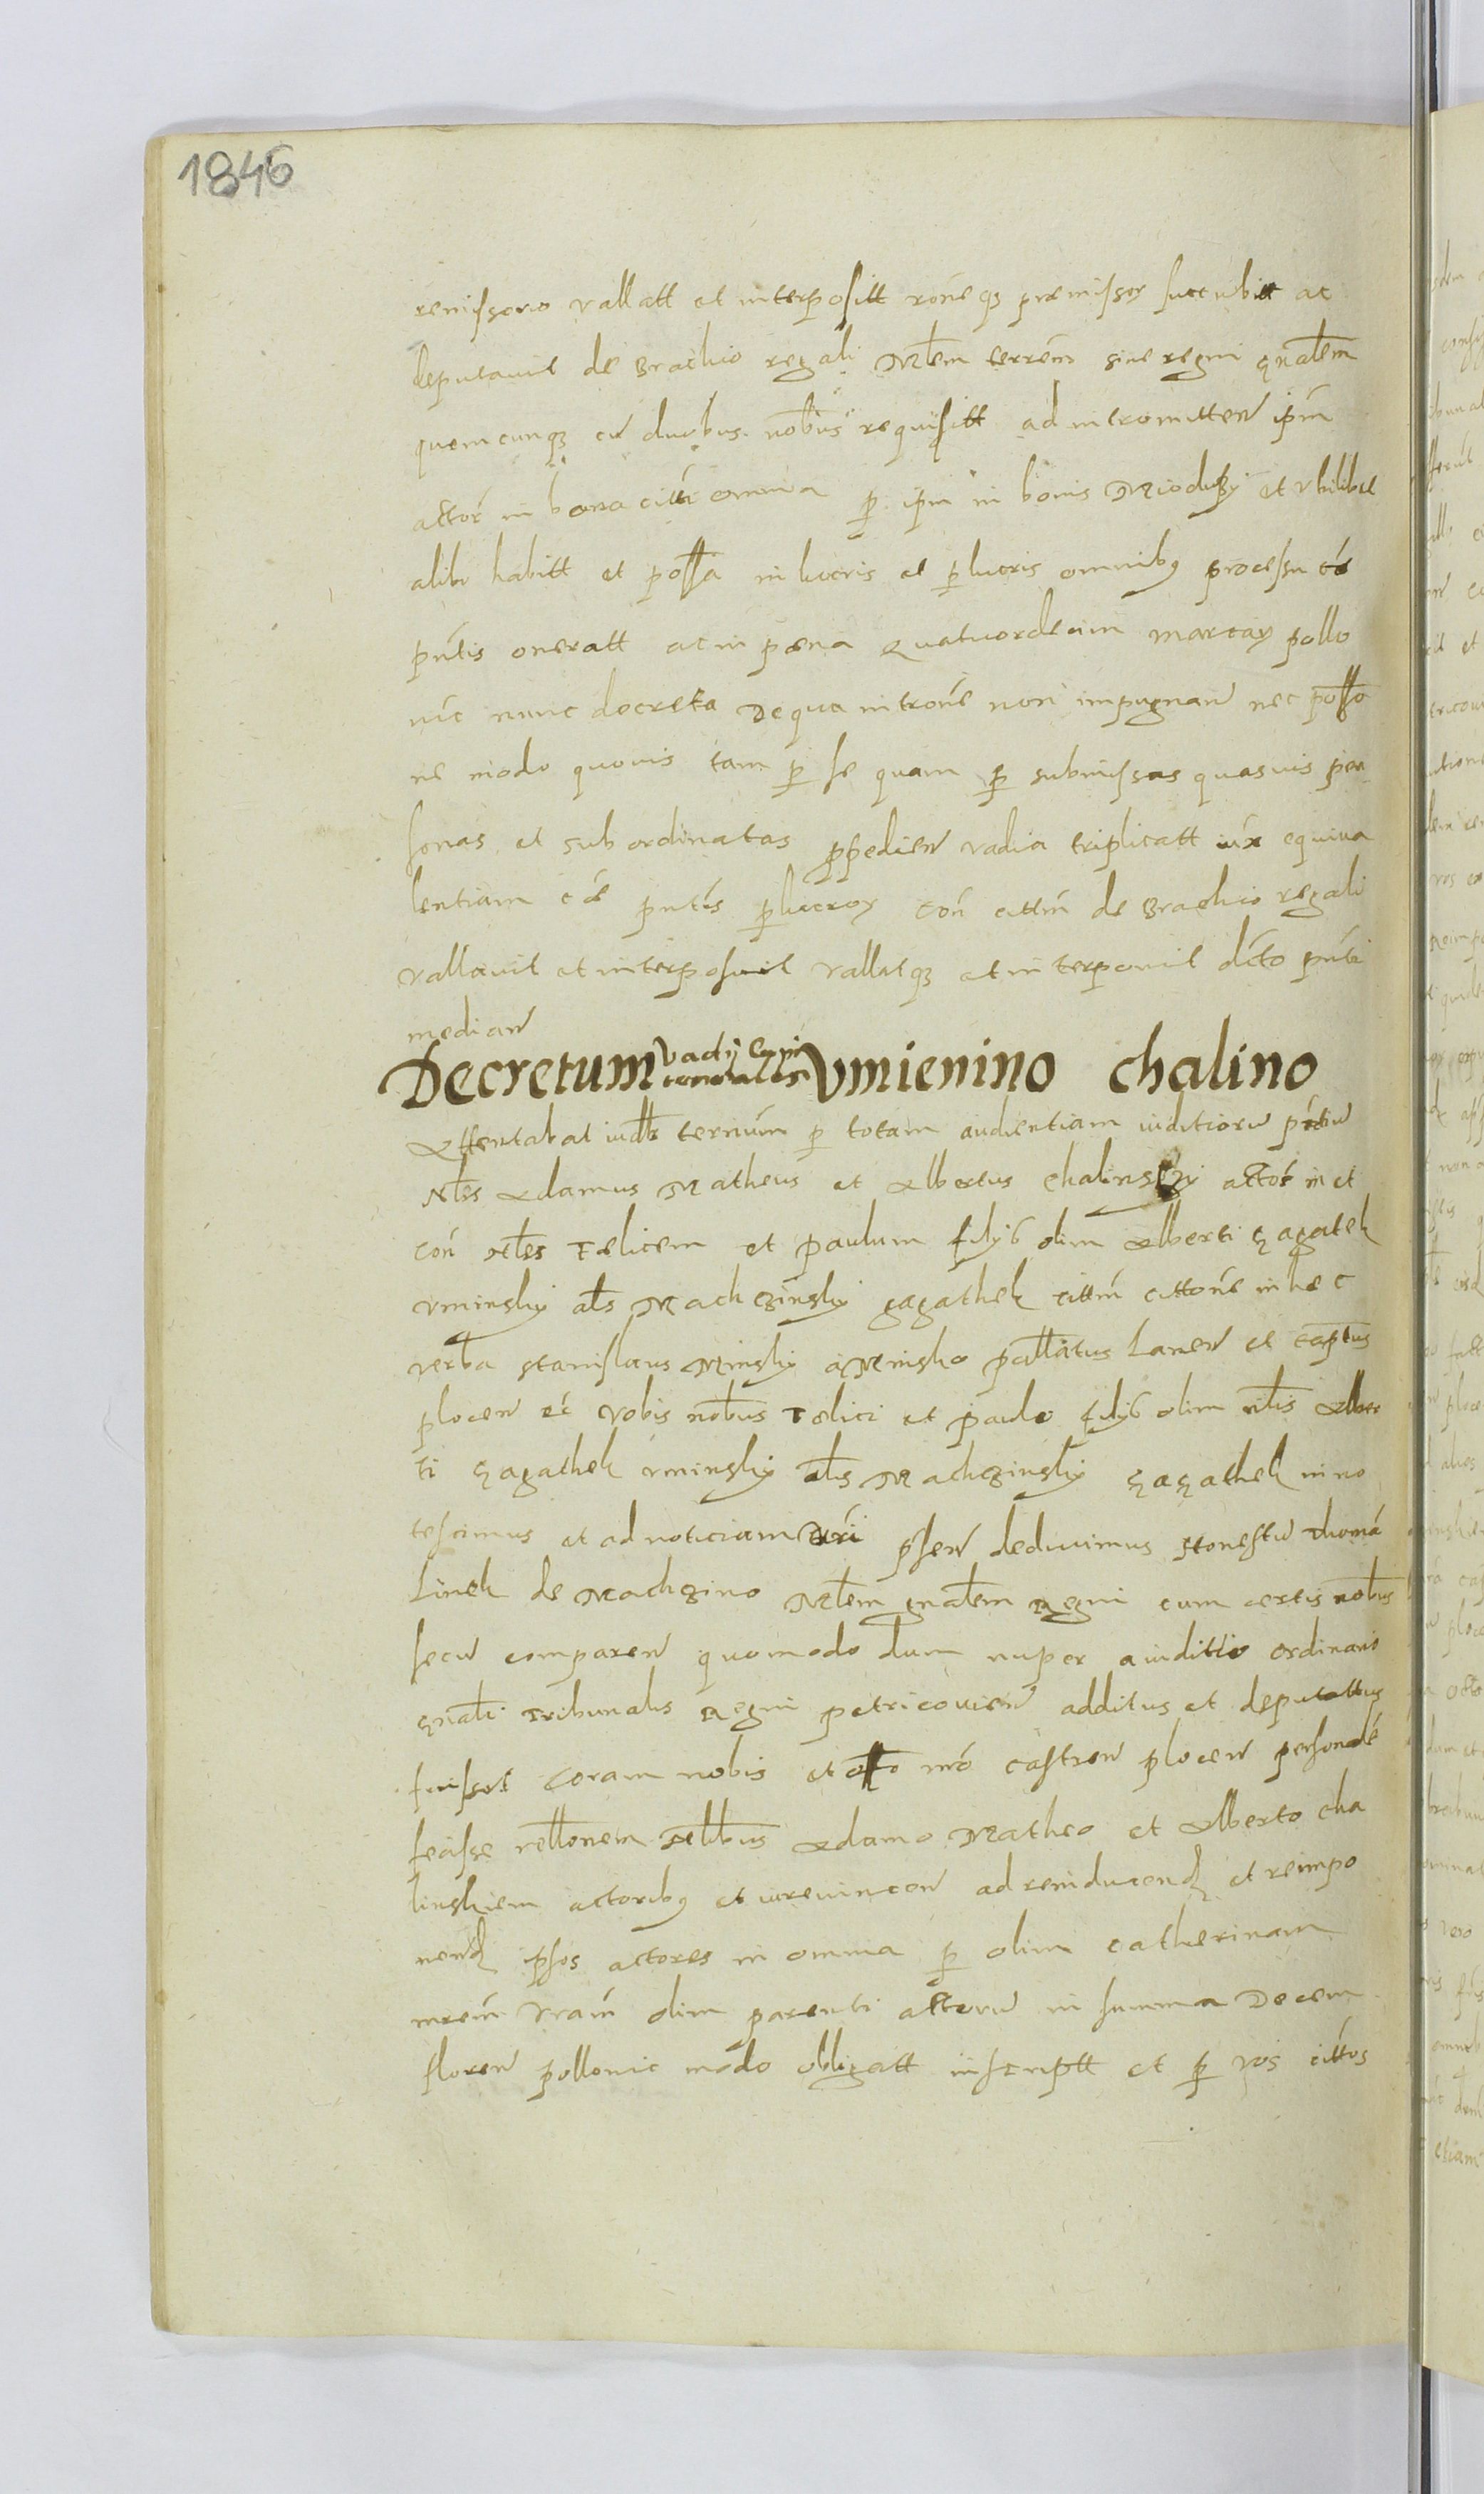 1846
remissorio vallatt et interposilt rone qz praemissor succubitt ac
deputavit de Brachio regali Mlem terrem sive regni gnalem
quemcunqz cu duobus nobus requisitt ad intromitten ipm
actor in bona citti omnia p ipm in bonis Mioduszy et ubilibet
alibi habitt et possa in lucris et perlucris omnibus processu
pntis oneratt ac in paena quatuordecim marcar pollo
nic nunc decreta De qua introne non impugnan nec posso
ne modo quovis tam p se quam p submissas quasvis per
sonas et sub ordinatas ppedien vadia triplicatt iux equiva
lentiam pntis perlucror con cittm de Brachio regali
vallavit et interposuit vallatqz et interponit dcto pnti
median
Decretum vadij Umienino Chalino
Attentabat iudlr ternum p totam audientiam iuditioru
Nles Adamus Matheus et Albertus Chalinsczy actor in et
con Nles Felicem et Paulum filijs olim Alberti Gagatek
Uminsky als Machczinsky Gagathek cittm cittone in hec
verba Stanislaus Minsky a Minsko pallatus Lancn et captus
plocen ec vobis nobus Felici et Paulo filijs olim nlis Alber
ti Gagathek Uminsky als Machczinsky Gagathek inno
tescimus et ad noticiam vri psen deducimus Honestu Thoma
Linek de Machczino Mlem gnalem Regni cum certis nobus
secu comparen quomodo dum nuper a iuditio ordinario
gnali Tribunalis Regni petricovien additus et deputattus
fuisset coram nobis et acto nro castren plocen personale
fecisse rellonem Nlibus Adamo Matheo et Alberto Cha
linskiem actoribus et iurevincen ad reinducend et reimpo
nend ipsos actores in omnia p olim Catherinam
mrem vram olim parenti actoru in summa Decem
floren pollonic modo obligatt inscriptt et p vos cittos